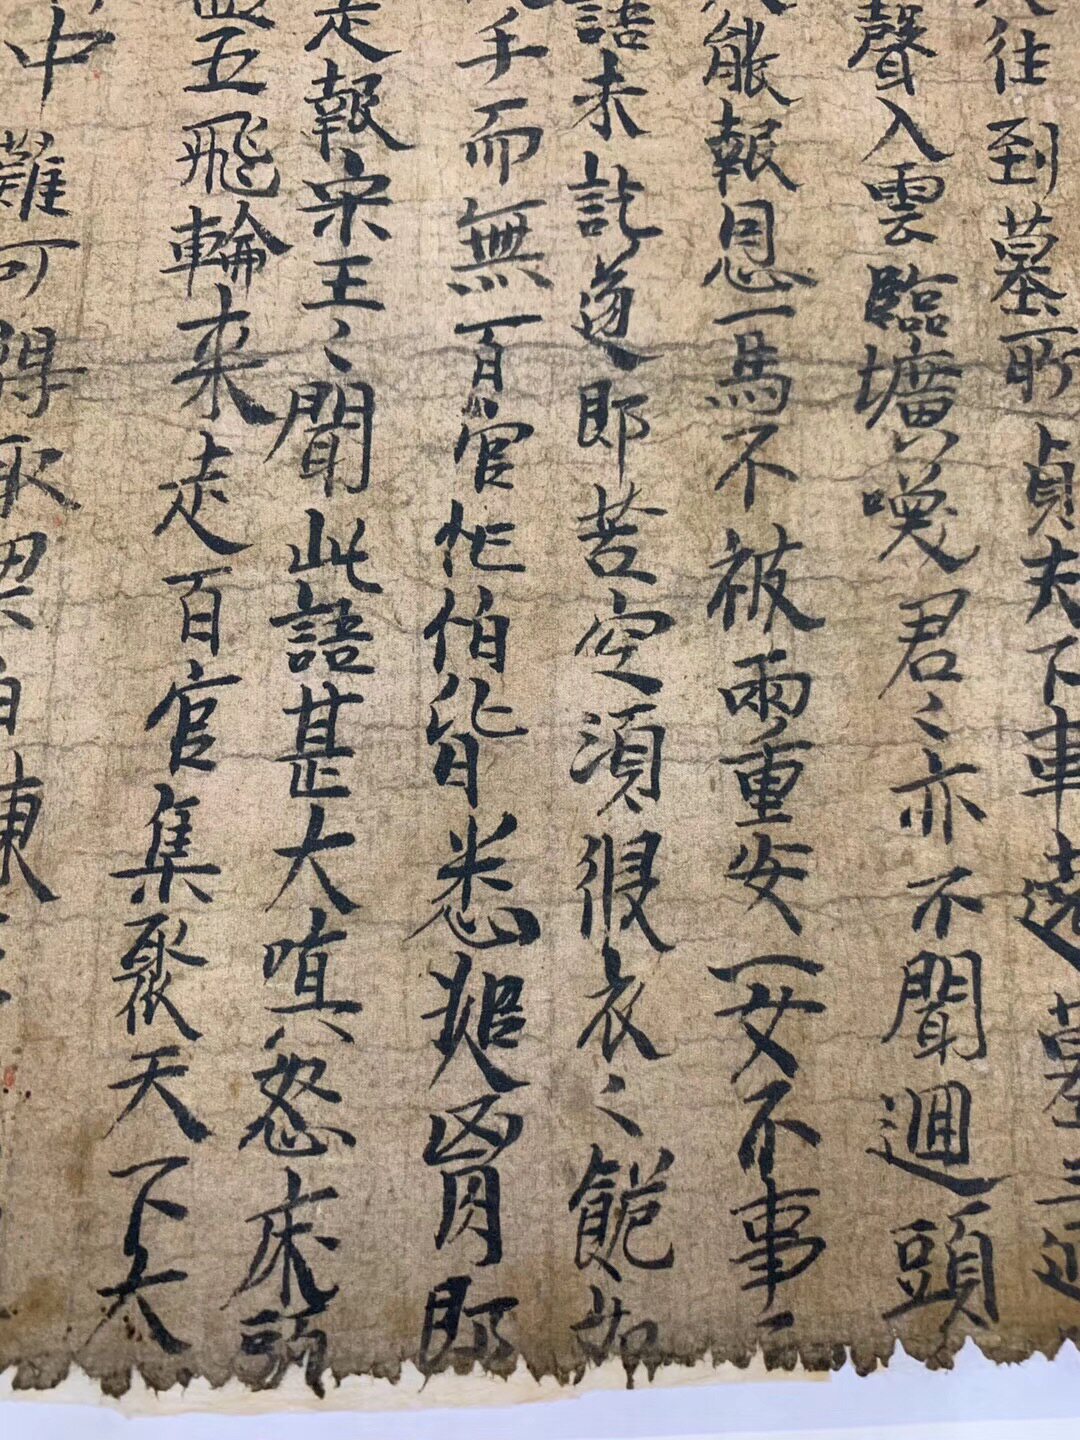 往到墓所貞夫下車遶墓三迊
聲入雲臨壙喚君〻亦不聞迴頭
能報恩一馬不被兩重安一女不事二
語未訖遂即苦空須侵衣〻飽如
手而無百官忙怕皆悉搥胸即
走報宋王〻聞此語甚大嗔怒床頭
五飛輪來走百官集聚天下大
中難可得取梁伯諫